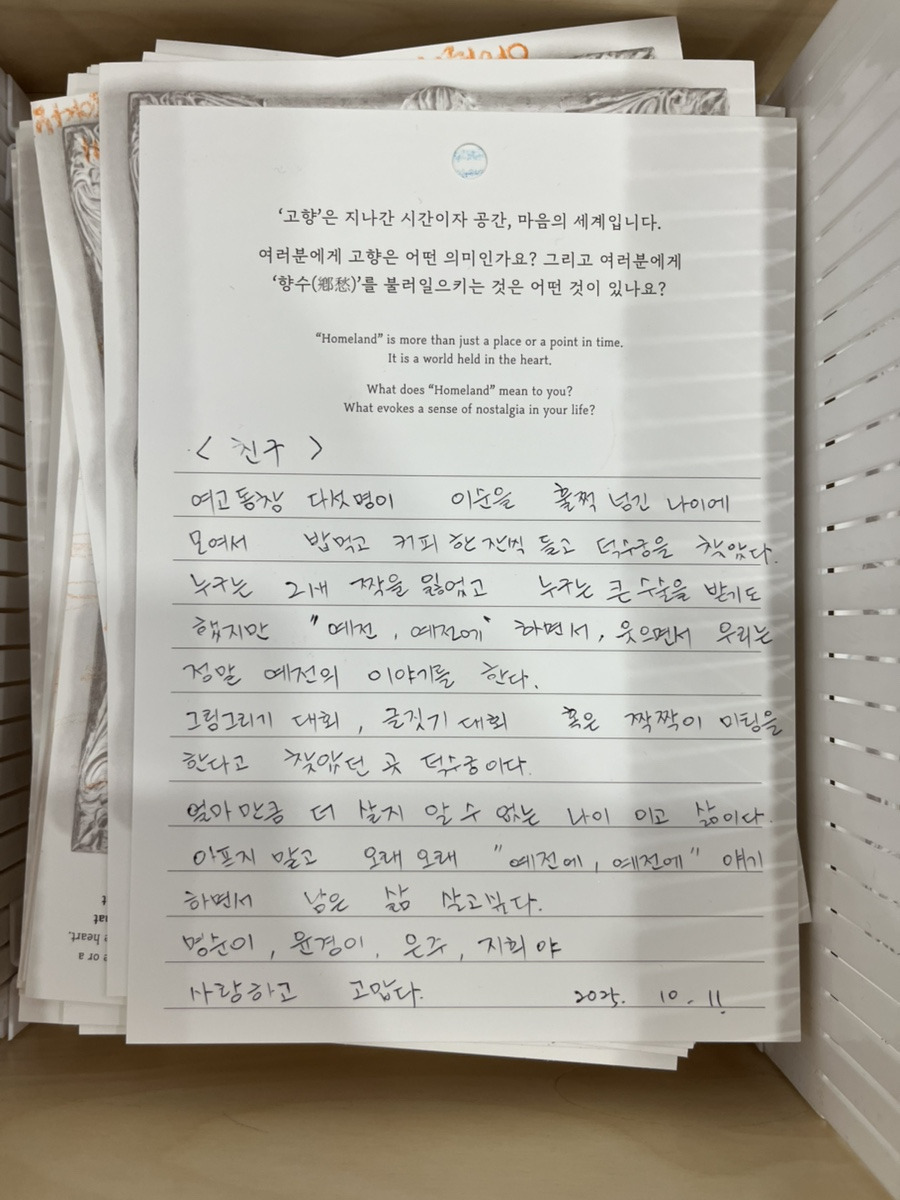 '고향'은 지나간 시간이자 공간, 마음의 세계입니다.
여러분에게 고향은 어떤 의미인가요? 그리고 여러분에게
'향수(鄕愁)'를 불러일으키는 것은 어떤 것이 있나요?
“Homeland” is more than just a place or a point in time.
It is a world held in the heart.
What does “Homeland” mean to you?
What evokes a sense of nostalgia in your life?
< 친구 >
여고동창 다섯명이 이순을 훌쩍 넘긴 나이에
모여서 밥먹고 커피 한잔씩 들고 덕수궁을 찾았다.
누구는 그새 짝을 잃었고 누구는 큰 수술을 받기도
했지만 "예전, 예전에" 하면서, 웃으면서 우리는
정말 예전의 이야기를 한다.
그림그리기 대회, 글짓기 대회 혹은 짝짝이 미팅을
한다고 찾았던 곳 덕수궁이다.
얼마만큼 더 살지 알 수 없는 나이 이고 삶이다.
아프지 말고 오래 오래 "예전에, 예전에" 얘기
하면서 남은 삶 살고싶다.
명순이, 윤경이, 은주, 지희야
사랑하고 고맙다. 2025. 10. 11.